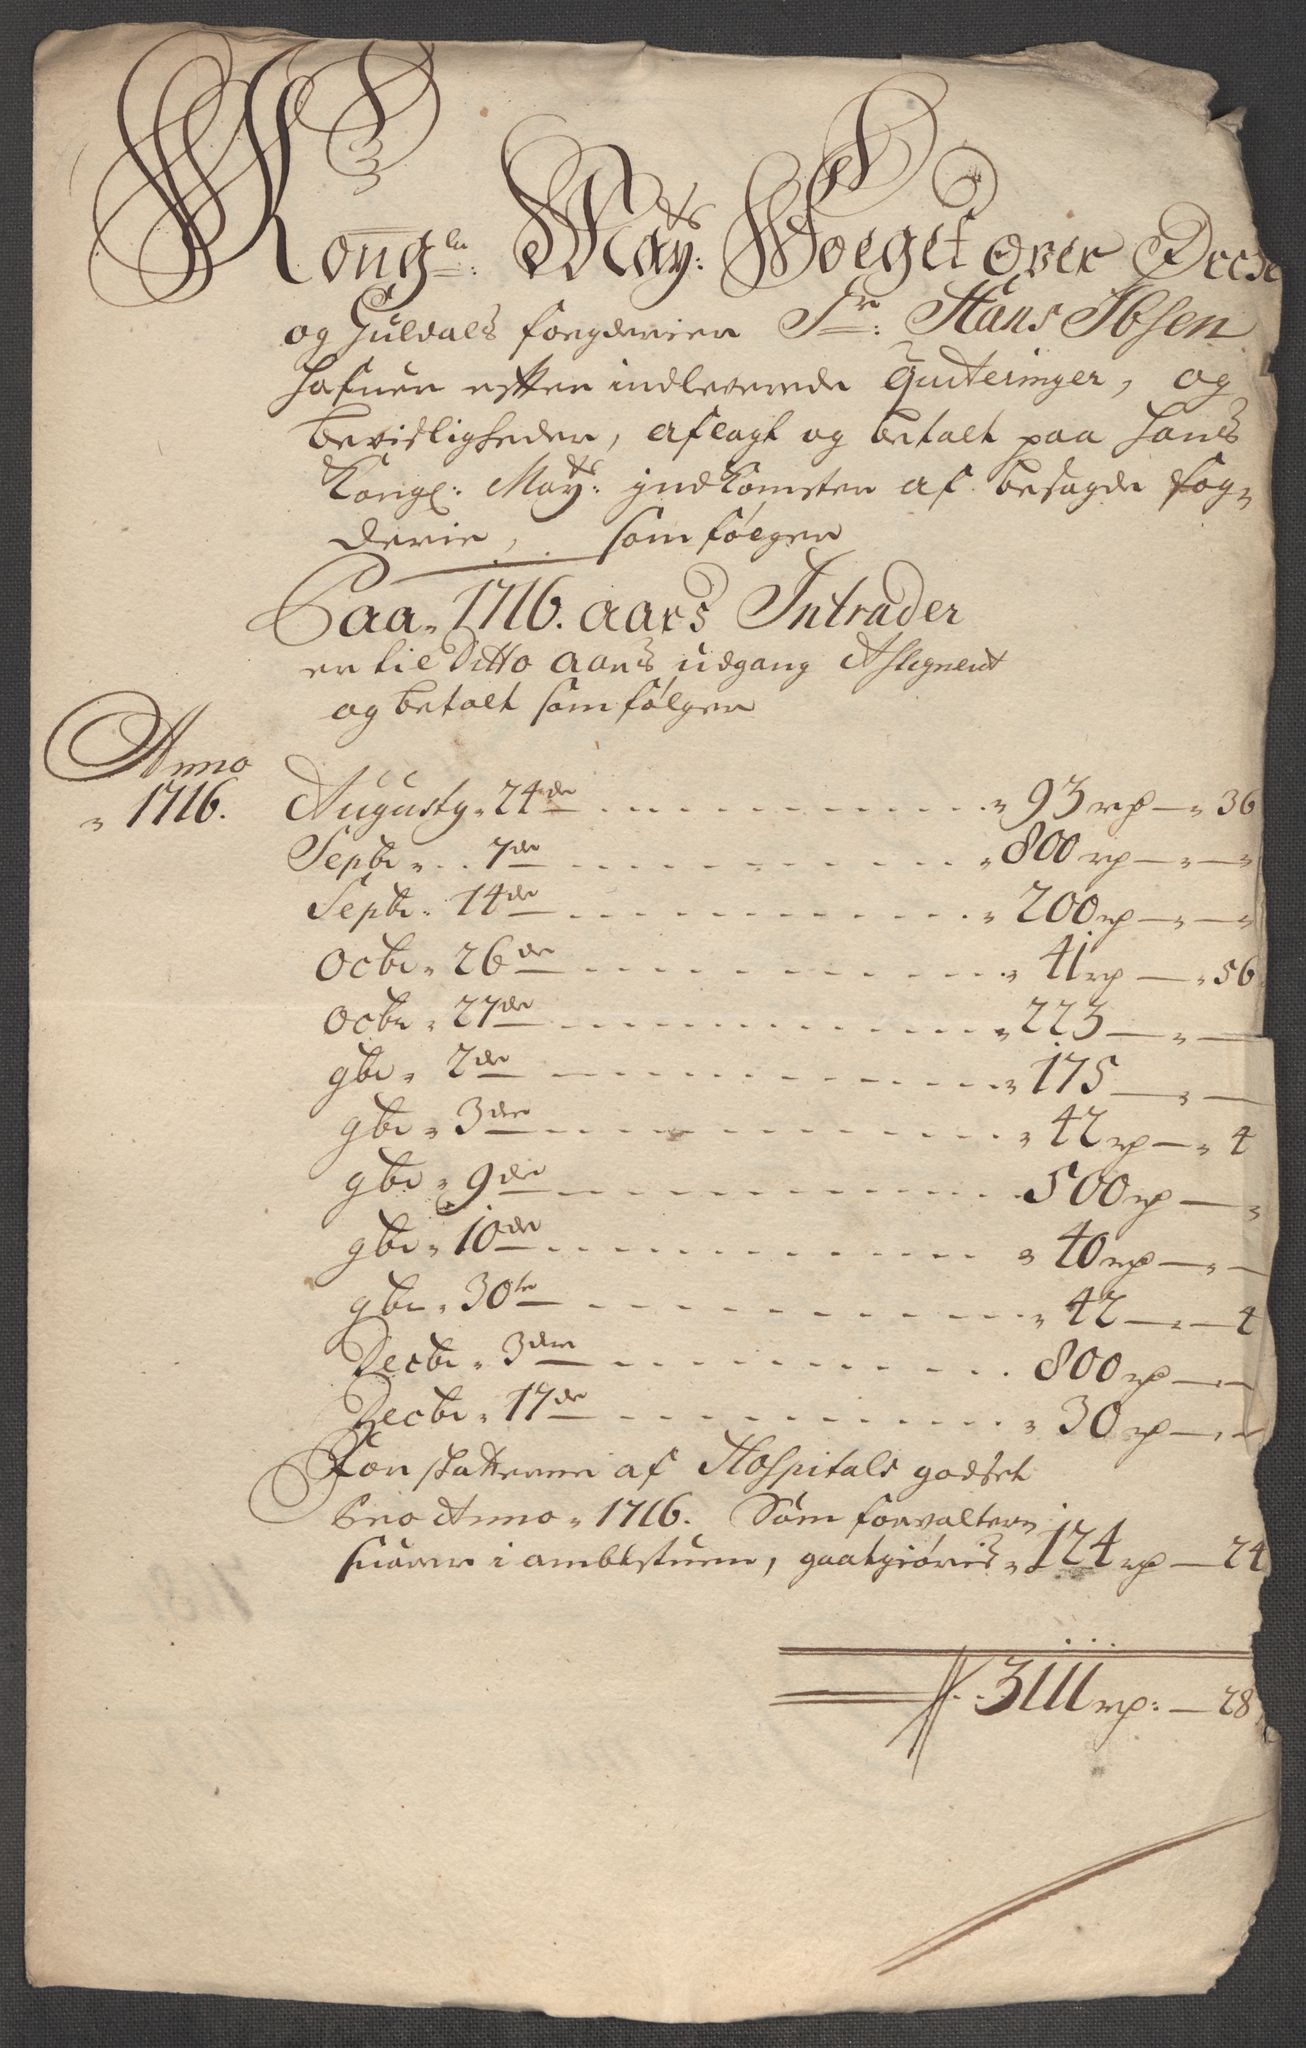 Kongln: Mayds: Foeget over Orcke
og Guldals foegderier Sr: Hans Ibsen
hafuer efter indleverede Quiteringer, og
beviisligheder, aflagt og betalt paa hans
Kongl: Mayds: indkomster af besagde fog„
derie, som følger
Paa„ 1716. aars Intrader
er til Ditto aars udgang Assigneret
og betalt som følger
Anno
„ 1716. Augusty„ 24de „ 93 rp — „ 36
Septbr„ 7de „ 800 rp — „ — „
Septbr„ 14de „ 200 rp — „ — „
Octbr„ 26de „ 41 rp — „ 56
Octbr„ 27de „ 223 — „ —
9br„ 2de „ 175 — „ —
9br„ 3die „ 42 rp — „ 4
9br„ 9de 500 rp — „
9br„ 10de „ 40 rp — „ —
9br„ 30te „ 42 — „ — 4
Decbr„ 3die 800 rp — „ —
Decbr„ 17de „ 30 rp — „ —
For skatterne af Hospitals godset
pro Anno„ 1716. Som forvalteren
suarer i ambtstuen, godtgiøris „ 124 rp — 24
3111 rp: — 28